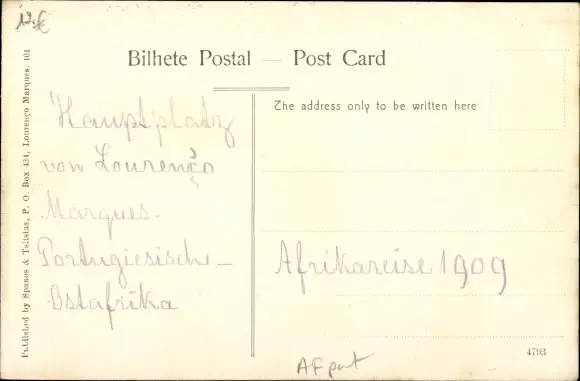 12.€
Bilhete Postal — Post Card
The address only to be written here
Hauptplatz
von Lourenço
Marques.
Portugiesische-
Ostafrika
Afrikareise 1909
Published by Spanos & Tsitsias, P. O. Box 434, Lourenço Marques. 101
4793
AF port